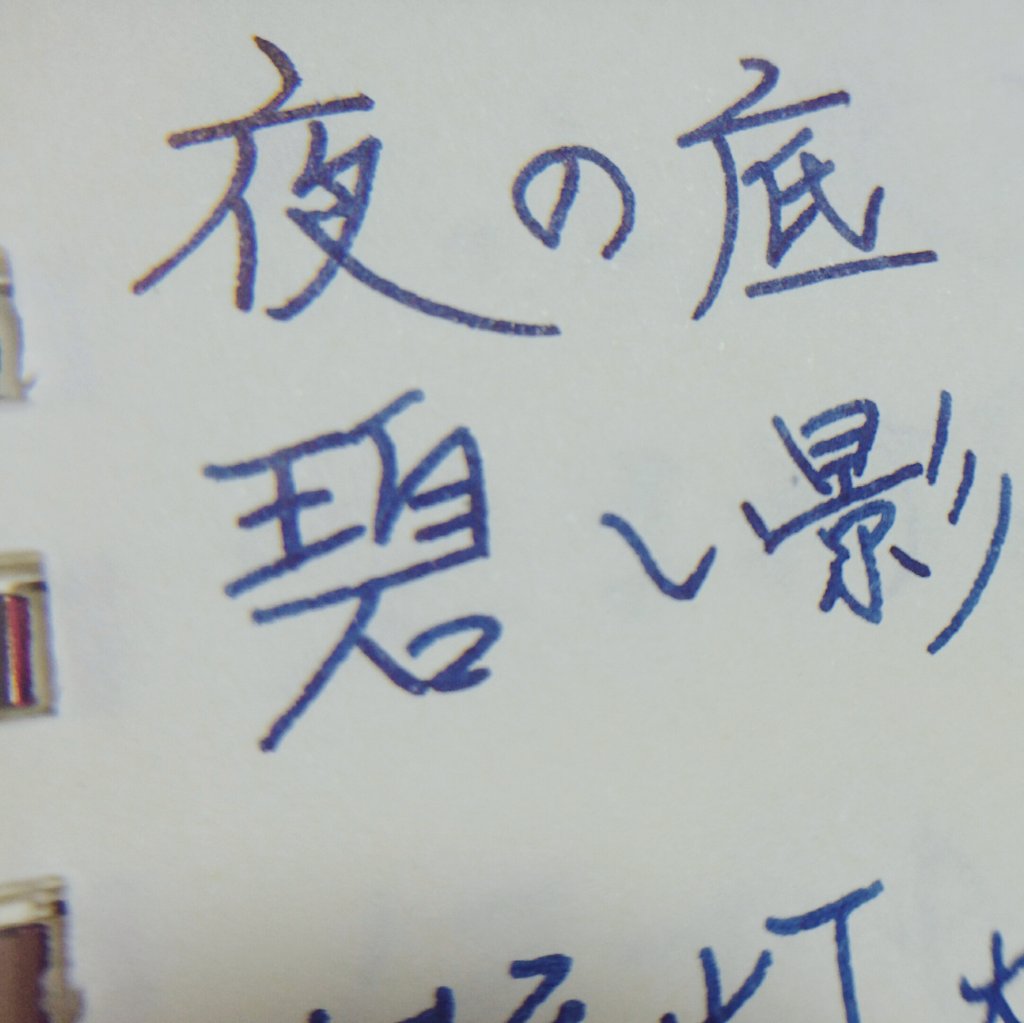 夜の底
碧い影
灯